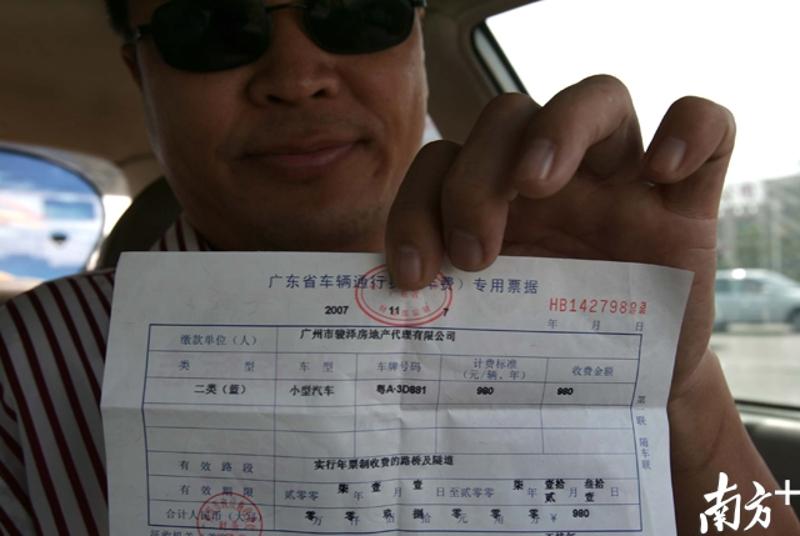 广东省车辆通行费（年费）专用票据
2007 年 11 月 7 日 HB142798
缴款单位（人） 广州市骏泽房地产代理有限公司
类 型 车 型 车牌号码 计费标准（元/辆、年） 收费金额
二类（蓝） 小型汽车 粤A·3D881 980 980
有效路段 实行年票制收费的路桥及隧道
有效期限 贰零零柒年壹月壹日至贰零零柒年壹拾贰月叁拾壹日
合计人民币（大写） 零万零仟玖佰捌拾零元零角零分 ¥980
第二联 随车联
南方+